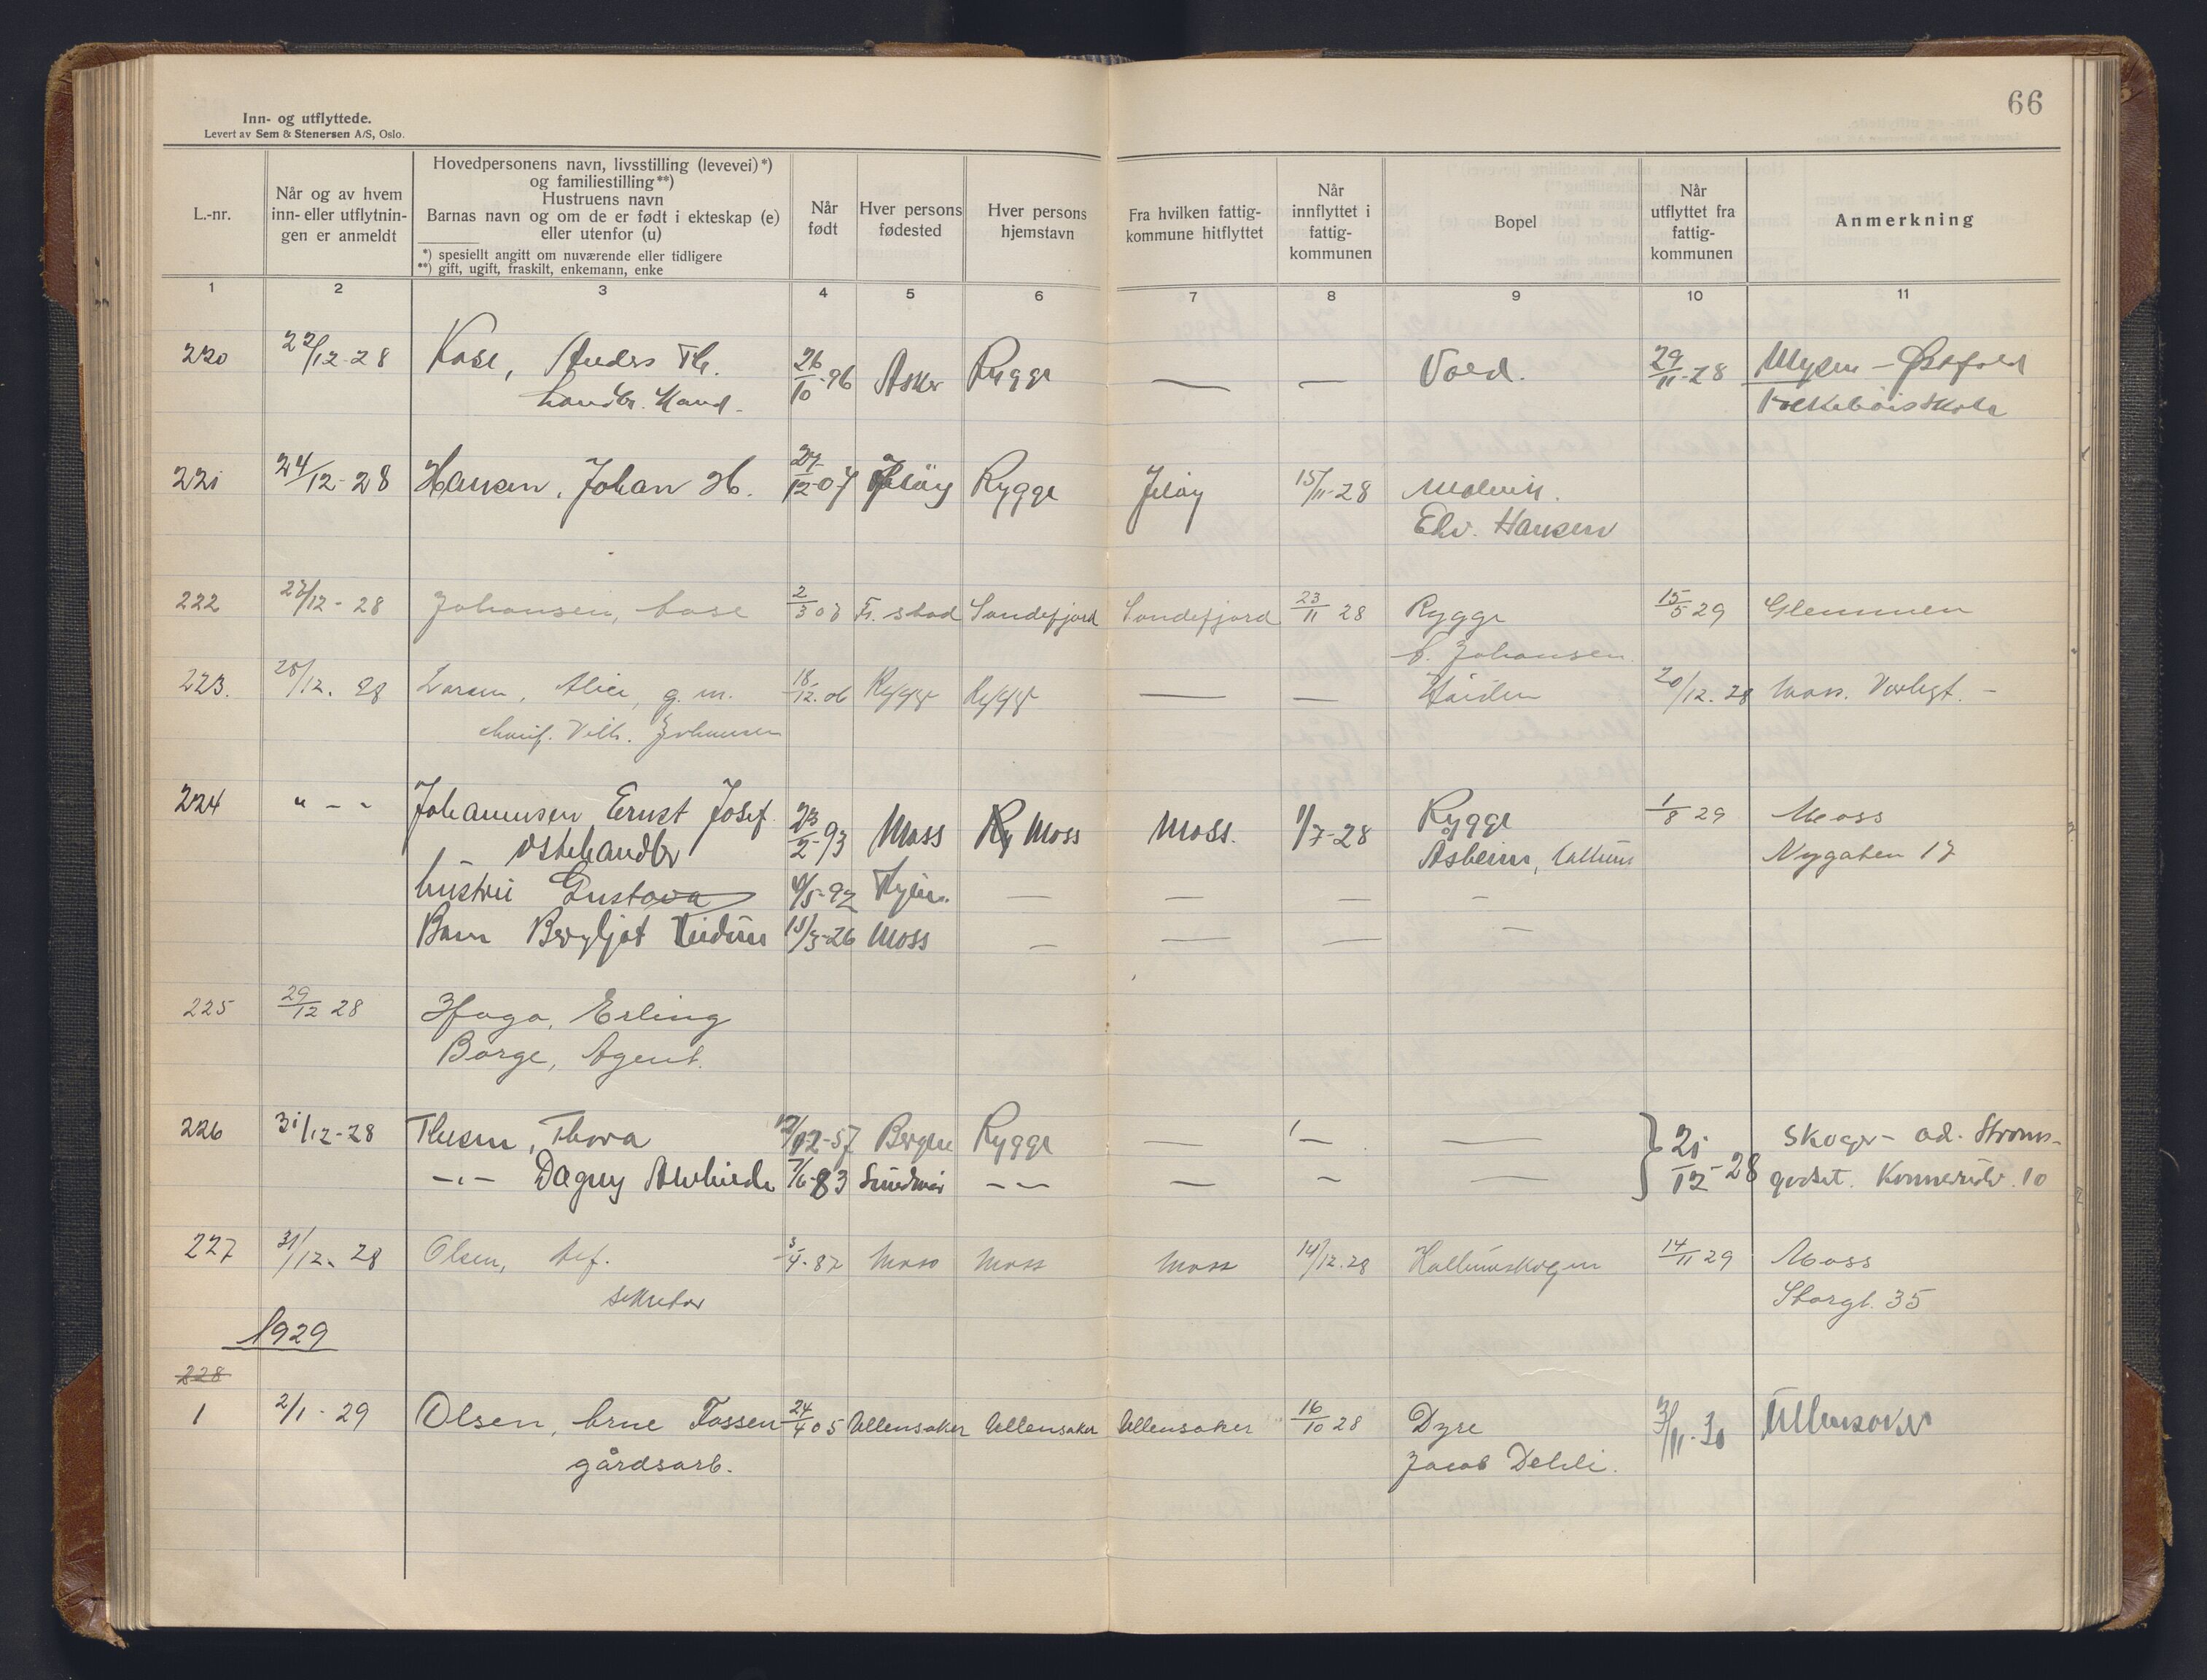 66
Inn- og utflyttede.
Levert av Sem & Stenersen A/S, Oslo.
L.-nr.
Når og av hvem
inn- eller utflytnin-
gen er anmeldt
Hovedpersonens navn, livsstilling (levevei)*)
og familiestilling**)
Hustruens navn
Barnas navn og om de er født i ekteskap (e)
eller utenfor (u)
*) spesiellt angitt om nuværende eller tidligere
**) gift, ugift, fraskilt, enkemann, enke
Når
født
Hver persons
fødested
Hver persons
hjemstavn
Fra hvilken fattig-
kommune hitflyttet
Når
innflyttet i
fattig-
kommunen
Bopel
Når
utflyttet fra
fattig-
kommunen
Anmerkning
1 2 3 4 5 6 7 8 9 10 11
220 22/12-28 Kase, Anders Th. 26/10-96 Asker Rygge — — Vold. 29/11-28 Mysen - Østfold
landbr. Kand.
221 24/12-28 Hansen, Johan H. 27/12-07 Jeløy Rygge Jeløy 15/11-28
Edv. Hansen
222 27/12-28 Johansen, 2/3 07 Fr.stad Sandefjord Sandefjord 23/11 28 Rygge 15/5 29 Glemmen
Johansen
223. 28/12. 28 Larsen, Alice, g. m. 18/12.06 Rygge Rygge — — Høiden 20/12.28 Moss. Varlegt. -
chauf. Vilh. Johansen
224 " - - Johannesen Ernst Josef 23/2-93 Moss Ry Moss Moss. 1/7-28 Rygge 1/8 29 Moss
ostehandler Asheim, Nygaten 17
hustru Gustava 4/5-92 — — — -
Barn Bergljot 15/3-26 Moss — — — -
225 29/12 28 Haga, Erling
Borge, Agent.
226 31/12-28 Thesen, Thora 12/12-57 Bergen Rygge — — — } 21/12-28 Skoger - ad. Strøms-
-"- Dagny 7/6-83 -- — - — godset. 10
227 31/12. 28 Olsen, 3/4-87 Moss Moss Moss 14/12.28 Hallumskogen 14/11 29 Moss
sekretær Storgt. 35
1929
228
1 2/1-29 Olsen, Arne Fossen 24/4 05 Ullensaker Ullensaker Ullensaker 16/10 28 Dyre 3/11-30 Ullensaker
gårdsarb. Jacob Dehli.